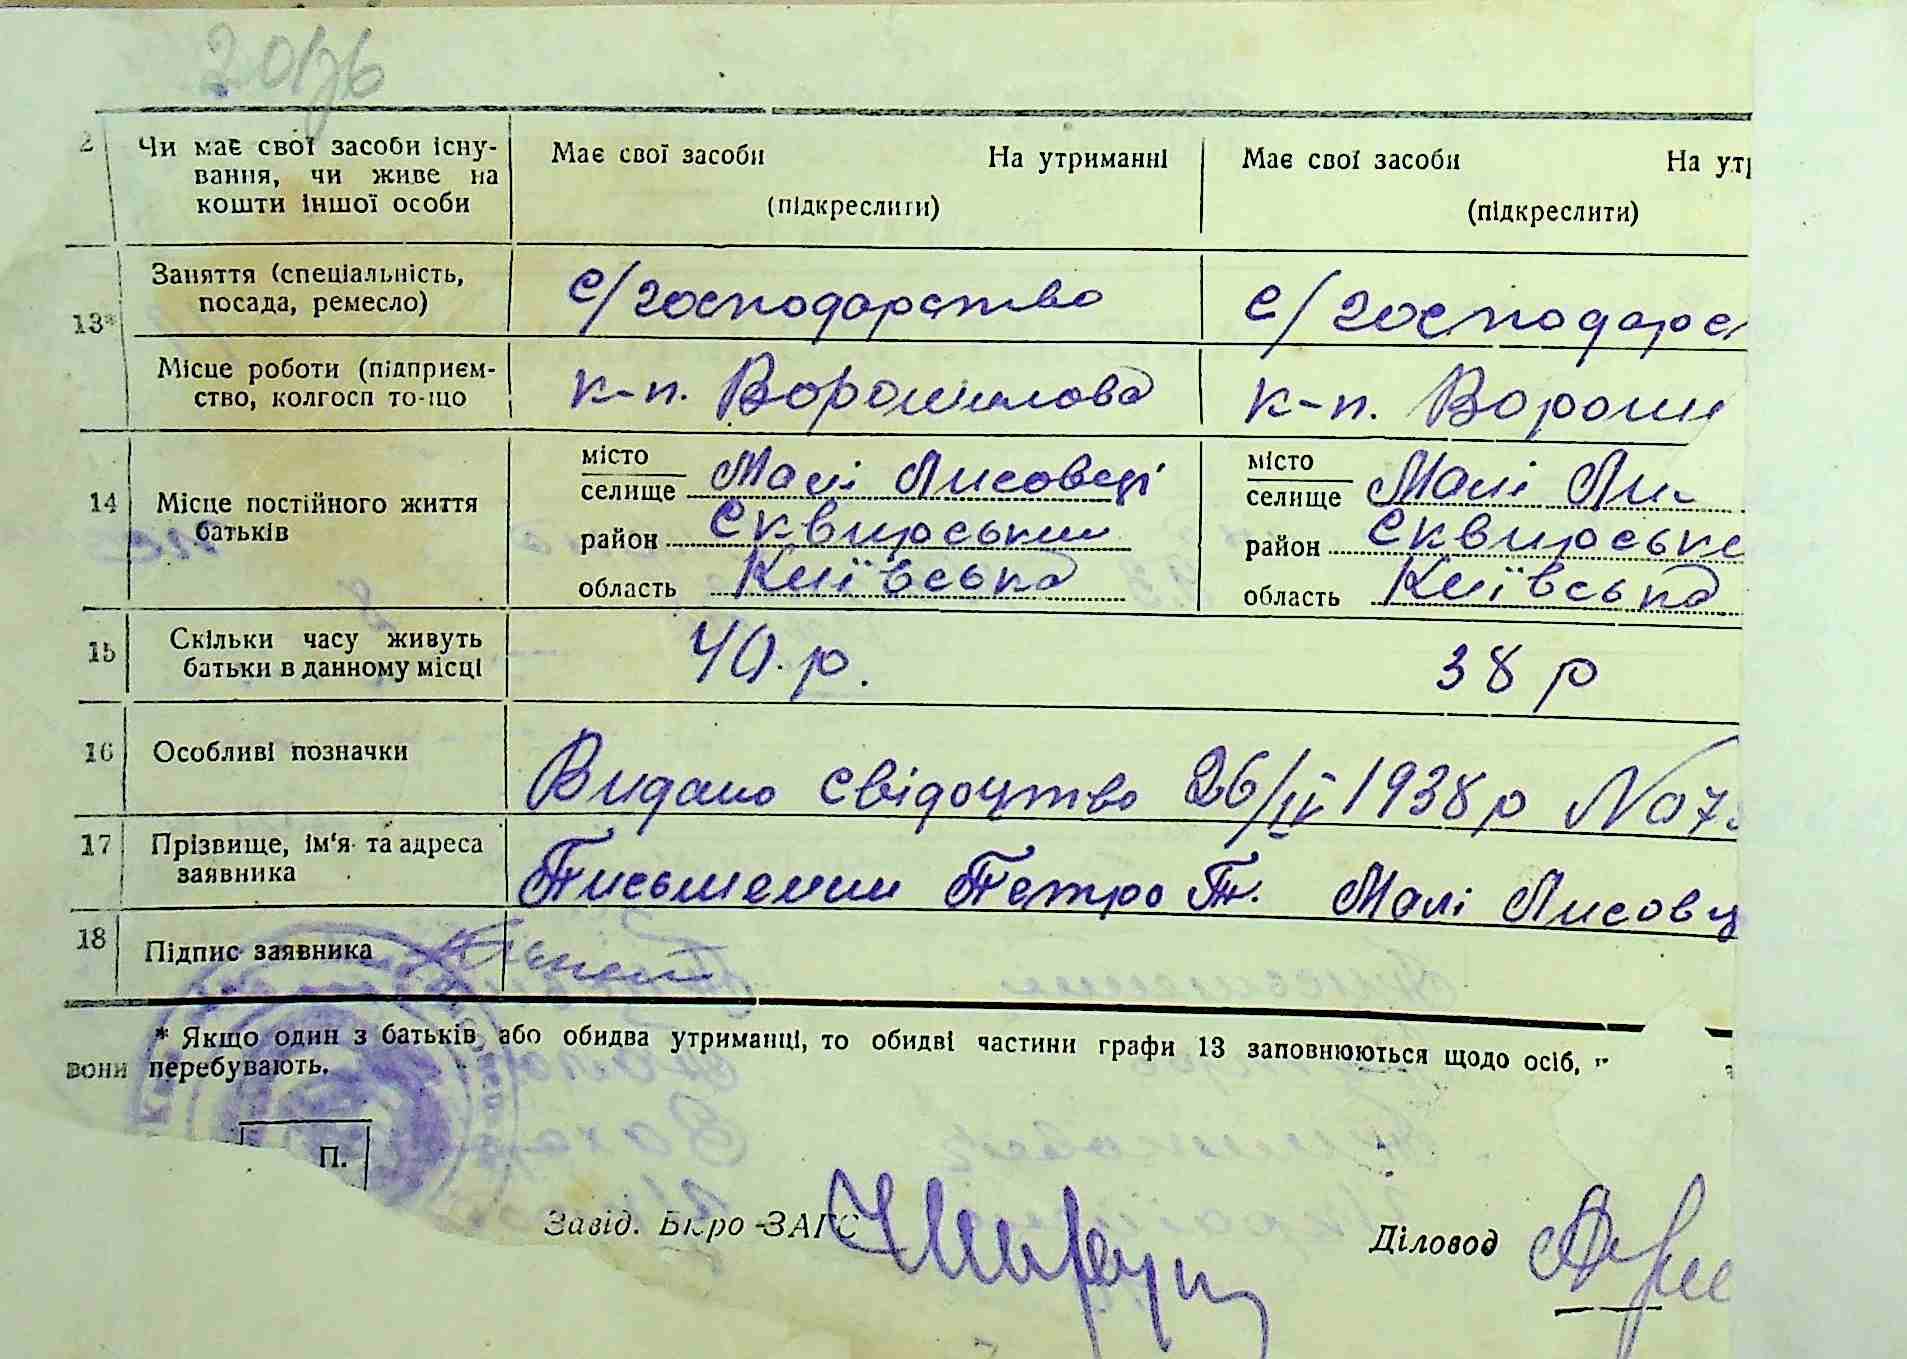 20176
2 Чи має свої засоби існу-
вання, чи живе на
кошти іншої особи
Має свої засоби На утриманні
(підкреслити)
Має свої засоби На утр
(підкреслити)
13*
Заняття (спеціальність,
посада, ремесло)
с/господарство
с/господарс
Місце роботи (підприєм-
ство, колгосп то-що
к-п. Ворошилова
к-п. Вороши
14 Місце постійного життя
батьків
місто
селище Малі Лисовеці
район Сквирський
область Київська
місто
селище Малі Ли-
район Сквирське
область Київська
15 Скільки часу живуть
батьки в данному місці
40.р.
38 р
16 Особливі позначки
Видано свідоцтво 26/IV 1938 р No 7
17 Прізвище, ім'я та адреса
заявника
Письмений Петро П. Малі Лисовц
18 Підпис заявника
* Якщо один з батьків або обидва утриманці, то обидві частини графи 13 заповнюються щодо осіб,
вони перебувають.
П.
Завід. Бюро ЗАГС
Діловод